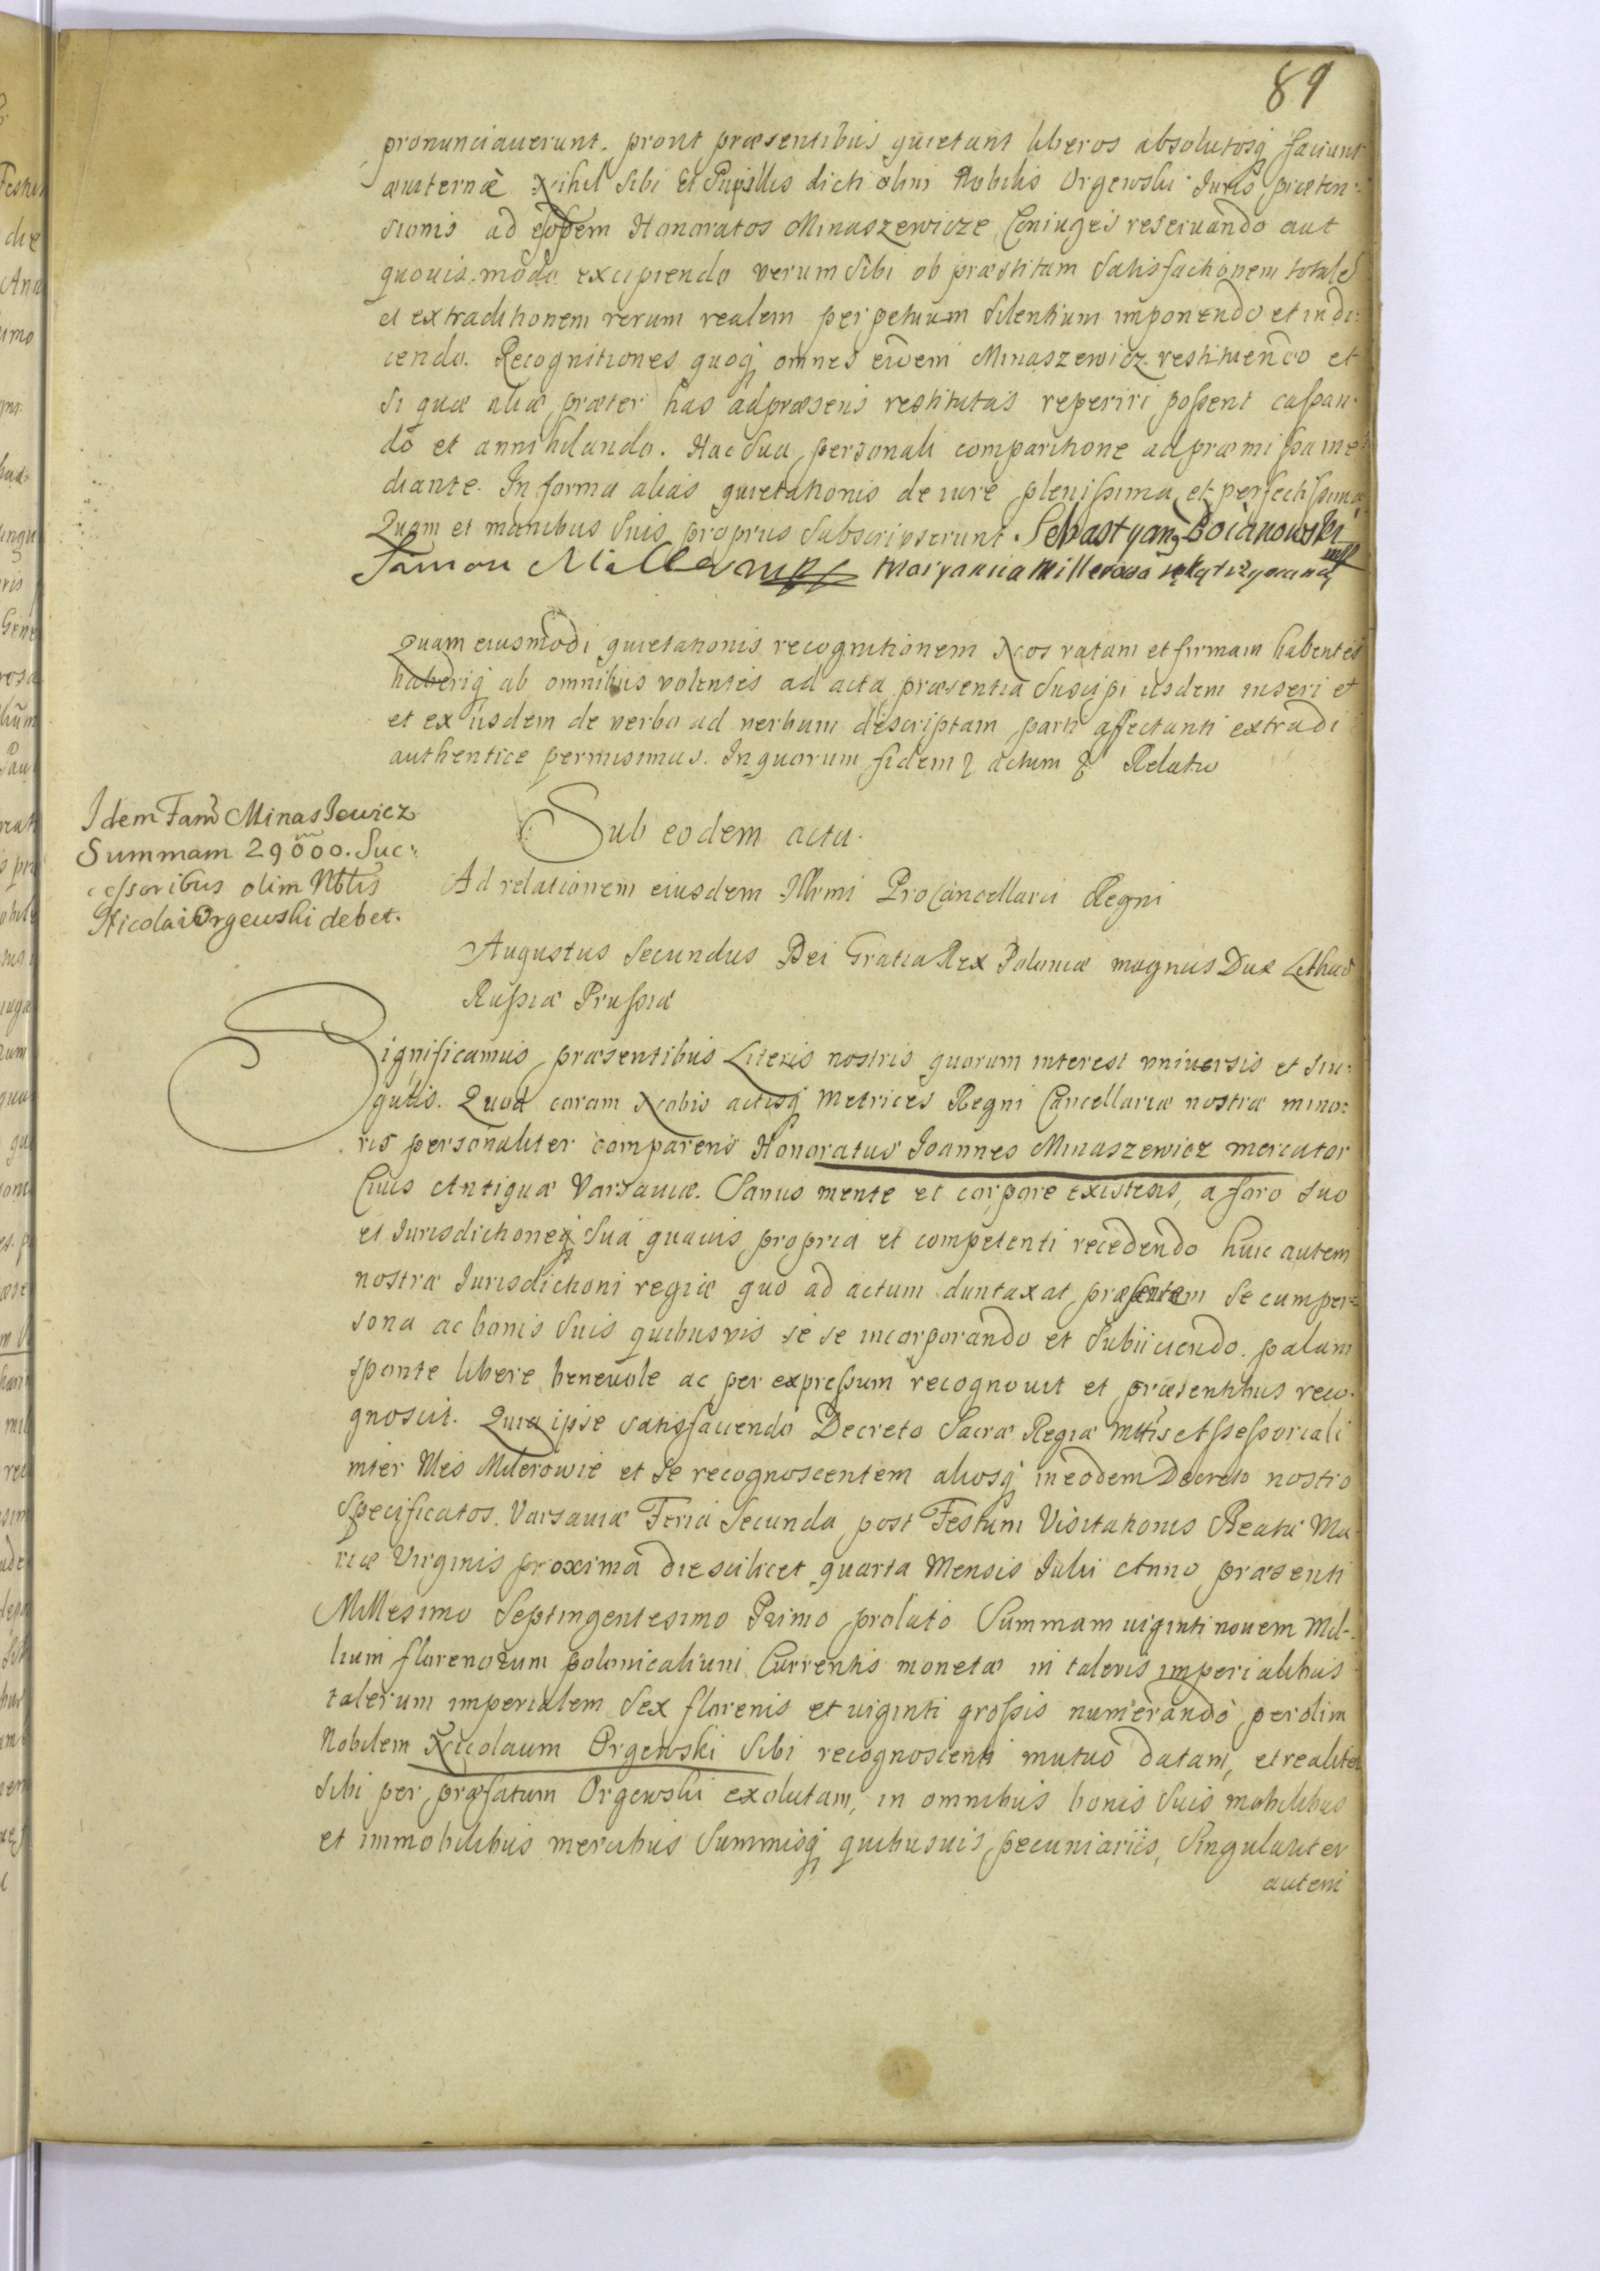 89
pronunciaverunt. prout præsentibus quietant liberos absolutosq faciunt
æviternè Nihil sibi et Pupillis dicti olim Nobilis Orgewski Juris præten:
sionis ad eosdem Honoratos Minaszewicze Coniuges reservando aut
quovis modo excipiendo verum sibi ob præstitam satisfactionem totale
et extraditionem rerum realem perpetuum silentium imponendo et indi:
cendo. Recognitiones quoq omnes eidem Minaszewicz restituendo et
si quæ aliæ præter has adpræsens restitutas reperiri possent cassan:
do et annihilando. Hac sua personali comparitione ad præmissa me:
diante. In forma alias quietationis de iure plenissima et perfectissima
Quam et manibus suis proprijs subscripserunt. Sebastyan Boianowski
Simon Miller mpp Maryanna Millerowa ręką trzymaną
Quam eiusmodi quietationis recognitionem Nos ratam et firmam habentes
haberiq ab omnibus volentes ad acta præsentia suscipi iisdem inseri et
et ex iisdem de verbo ad verbum descriptam parti affectanti extradi
authentice permisimus. In quorum fidem & actum & Relatio
Idem Fam Minasiewicz
Summam 29000. Suc:
cessoribus olim Nblis
Nicolai Orgewski debet.
Sub eodem actu.
Ad relationem eiusdem Illrmi ProCancellarii Regni
Augustus Secundus Dei Gratia Rex Poloniæ magnus Dux Lithua
Russiæ Prussiæ
Significamus præsentibus Literis nostris quorum interest universis et sin:
gulis. Quod coram Nobis actisq Metrices Regni Cancellariæ nostræ mino:
ris personaliter comparens Honoratus Joannes Minaszewicz mercator
Civis Antiquæ Varsaviæ. Sanus mente et corpore existens, a foro suo
et Jurisdictioneq sua quavis propria et competenti recedendo huic autem
nostræ Jurisdictioni regiæ quo ad actum duntaxat præsentem se cum per:
sona ac bonis suis quibusvis se se incorporando et subiiciendo. palam
sponte libere benevole ac per expressum recognovit et præsentibus reco:
gnoscit. Quia ipse satisfaciendo Decreto Sacræ Regiæ Mttis Assessoriali
inter Nles Milerowie et se recognoscentem aliosq in eodem Decreto nostro
specificatos. Varsaviæ Feria Secunda post Festum Visitationis Beatæ Ma:
riæ Virginis proxima die scilicet quarta Mensis Julii Anno præsenti
Millesimo Septingentesimo Primo prolato Summam viginti novem Mil:
lium florenorum polonicalium Currentis monetæ in taleris imperialibus
talerum imperialem sex florenis et viginti grossis numerando per olim
Nobilem Nicolaum Orgewski sibi recognoscenti mutuo datam, et realiter
sibi per præfatum Orgewski exolutam, in omnibus bonis suis mobilibus
et immobilibus mercibus Summisq quibusvis pecuniariis, Singulariter
autem